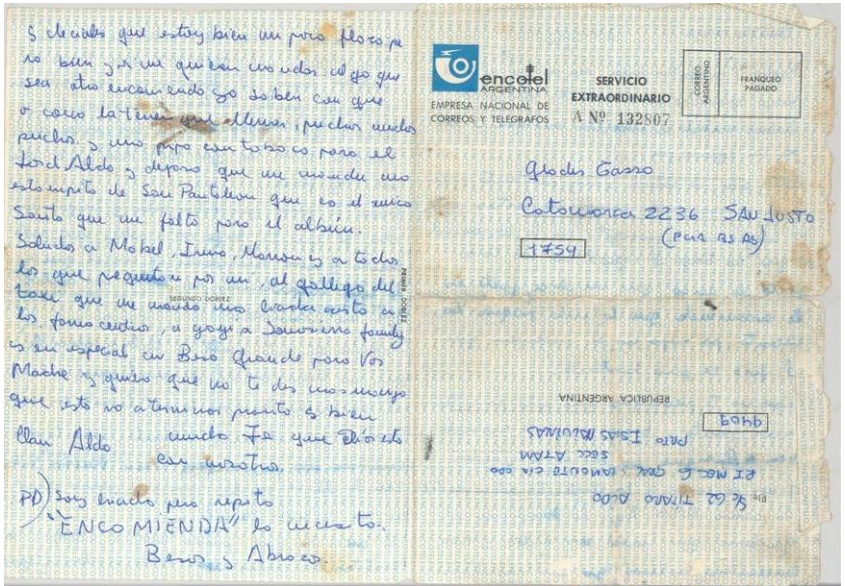 y deciales que estoy bien un poco flaco pe
ro bien y si me quieren mandar algo que
sea otra encomienda ya saben con que
o como la tenes que llenar, puchos muchos
puchos y una pipa con tabaco para el
Lord Aldo y deforo que me mande una
estampita de San Pantaleon que es el unico
Santo que me falta para el album.
Saludos a Mabel, Irma, y a todos
los que pregunten por mi, al gallego del
taxi que me mando una carta a
los farmaceuticos, a goyi a family
y en especial un Beso Grande para Vos
Madre y quiero que no te des mas manija
que esto va a terminar pronto y bien
mucha Fe que Dios esta
Clau Aldo
con nosotros.
PD) Soy pero repito
"ENCOMIENDA" la necesito.
Besos y Abrazos.
PRIMER DOBLEZ
SEGUNDO DOBLEZ
encotel
ARGENTINA
EMPRESA NACIONAL DE
CORREOS Y TELEGRAFOS
SERVICIO
EXTRAORDINARIO
A Nº 132807
CORREO
ARGENTINO
FRANQUEO
PAGADO
Gladis Tasso
Catamarca 2236 SAN JUSTO
(PCIA BS AS)
1754
Rte. SC 62 TITARO ALDO
RI MEC 6 GRAL. CIA CDO
SECC ATAM
PRTO ISLAS MALVINAS
9409
REPUBLICA ARGENTINA